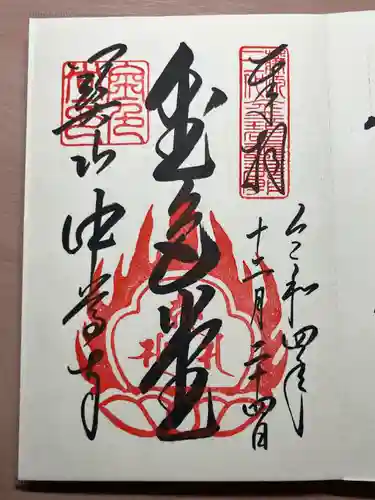 奉拝
令和四年
十二月二十四日
金色堂
関山中尊寺